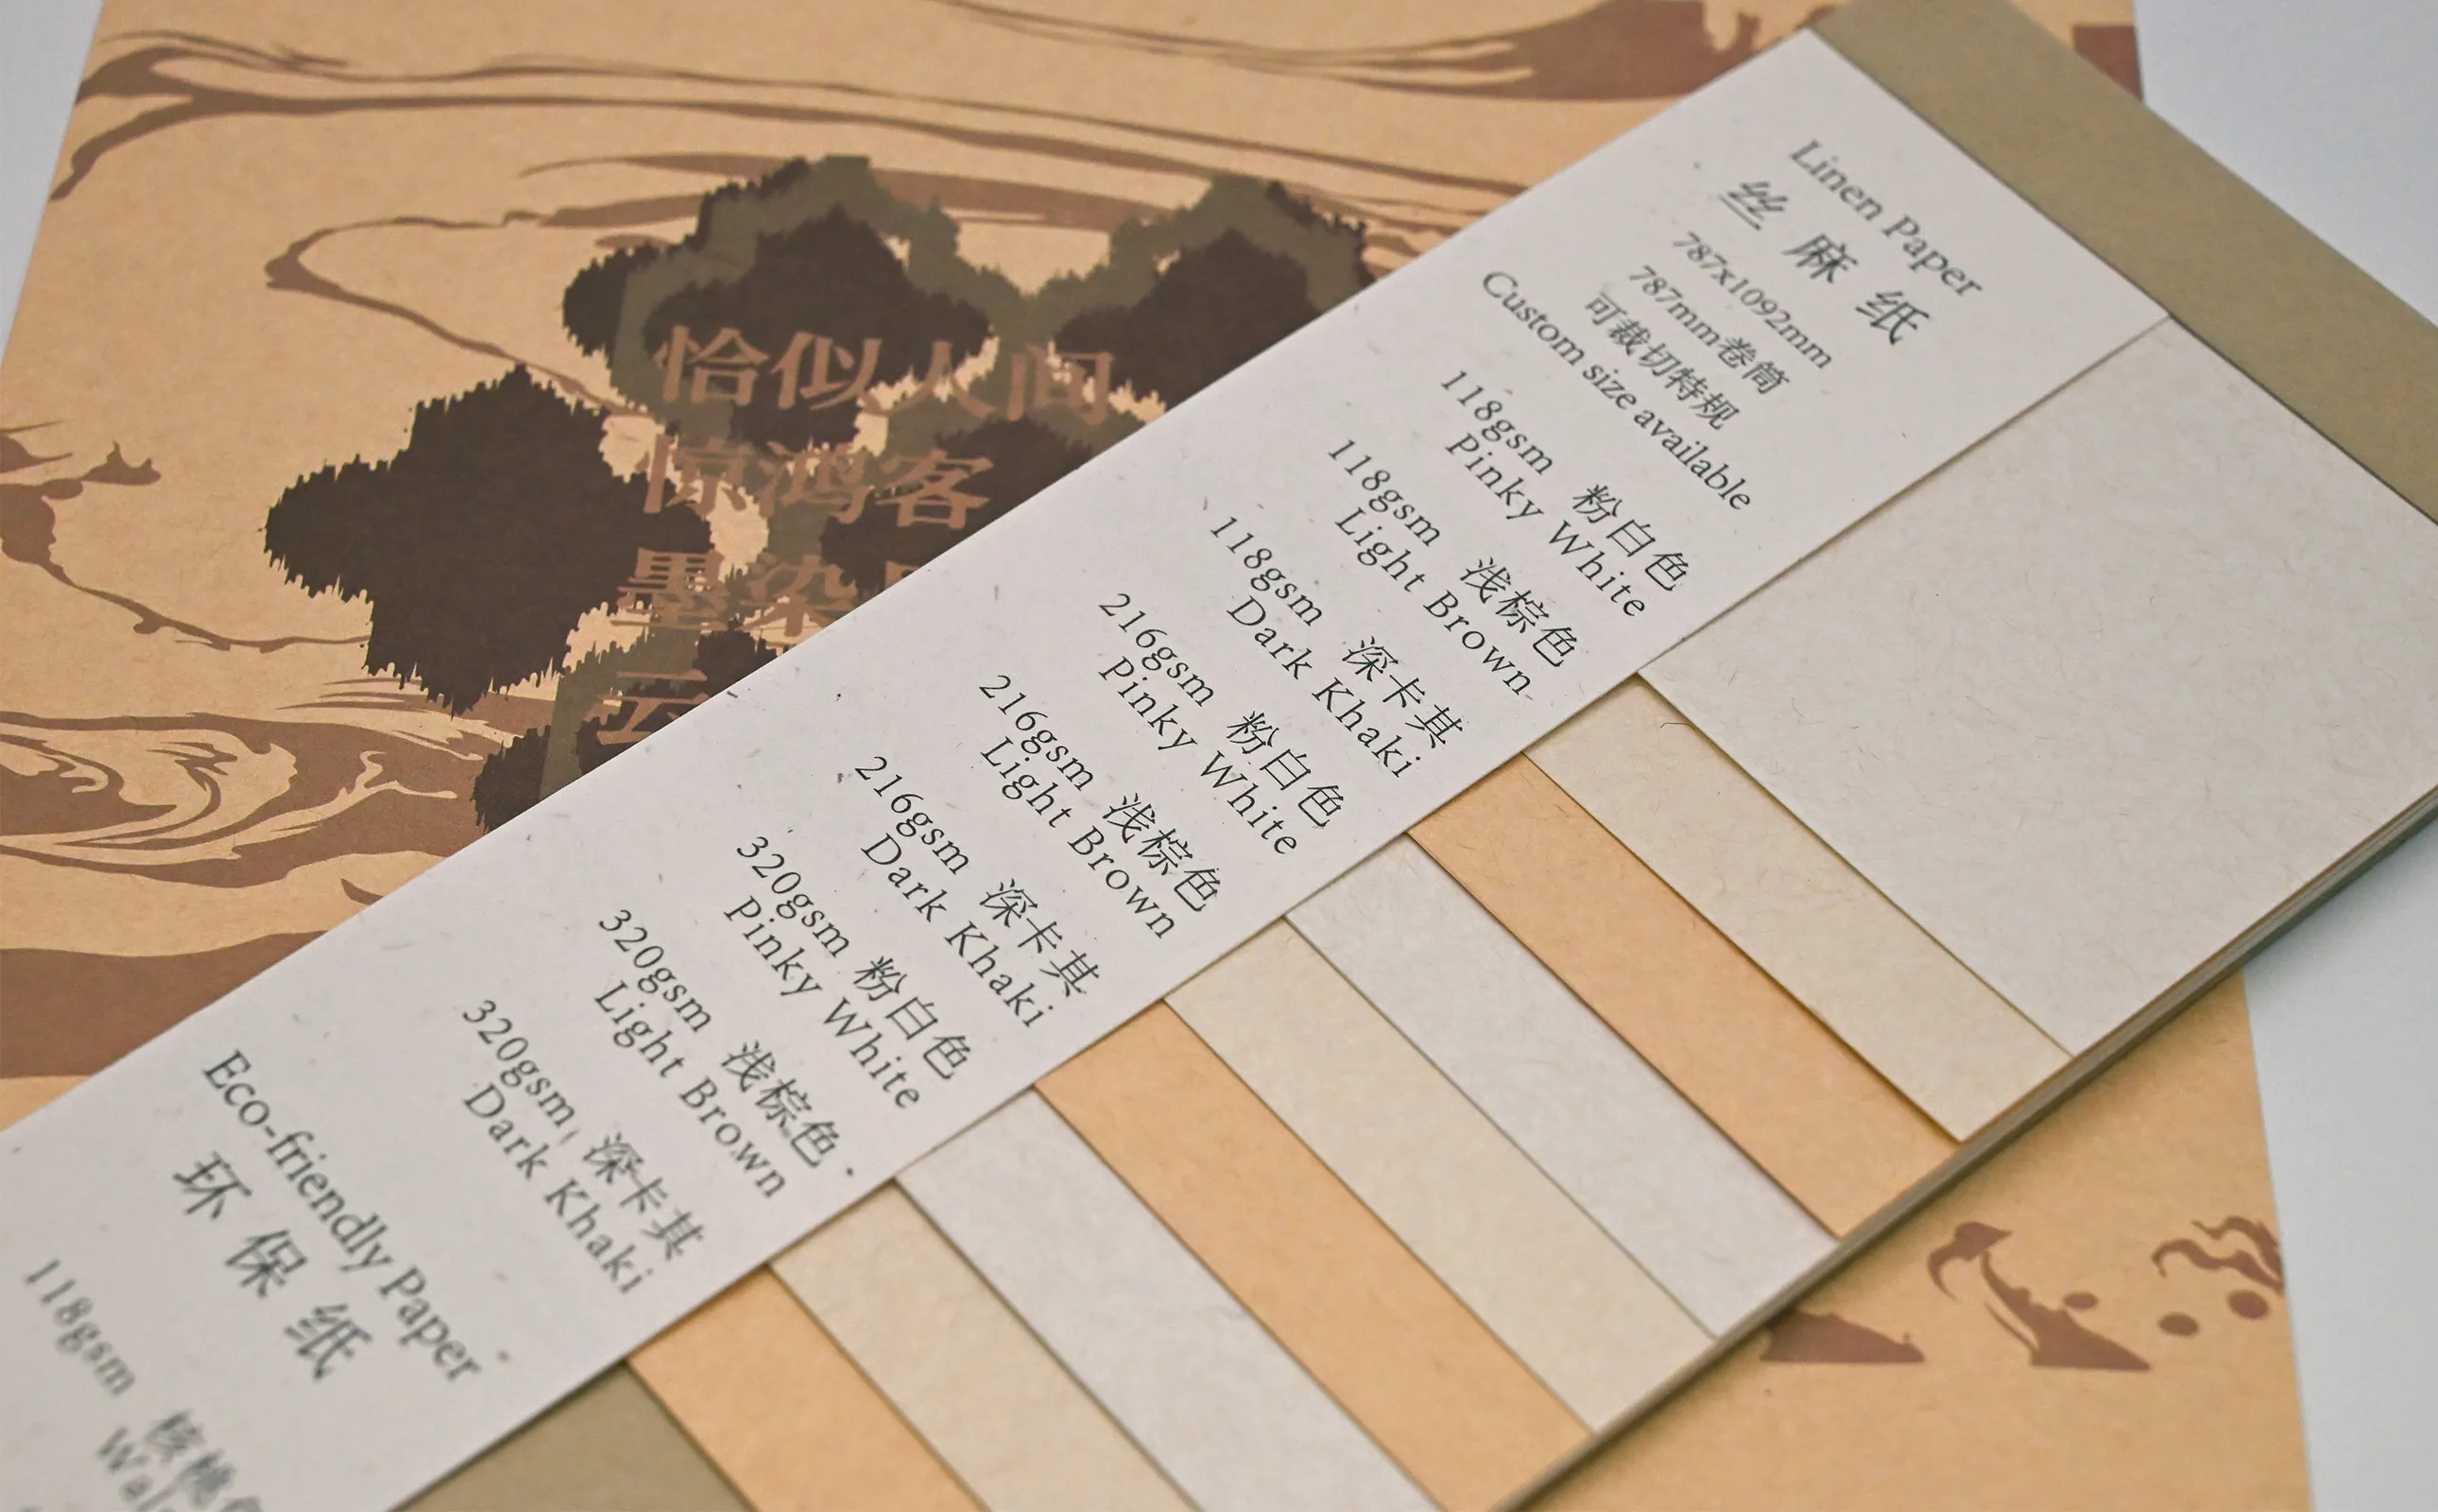 恰似人间
惊鸿客
墨染
云
Linen Paper
丝麻纸
787x1092mm
787mm卷筒
可裁切特规
Custom size available
118gsm 粉白色
Pinky White
118gsm 浅棕色
Light Brown
118gsm 深卡其
Dark Khaki
216gsm 粉白色
Pinky White
216gsm 浅棕色
Light Brown
216gsm 深卡其
Dark Khaki
320gsm 粉白色
Pinky White
320gsm 浅棕色
Light Brown
320gsm 深卡其
Dark Khaki
Eco-friendly Paper
环保纸
118gsm 核桃